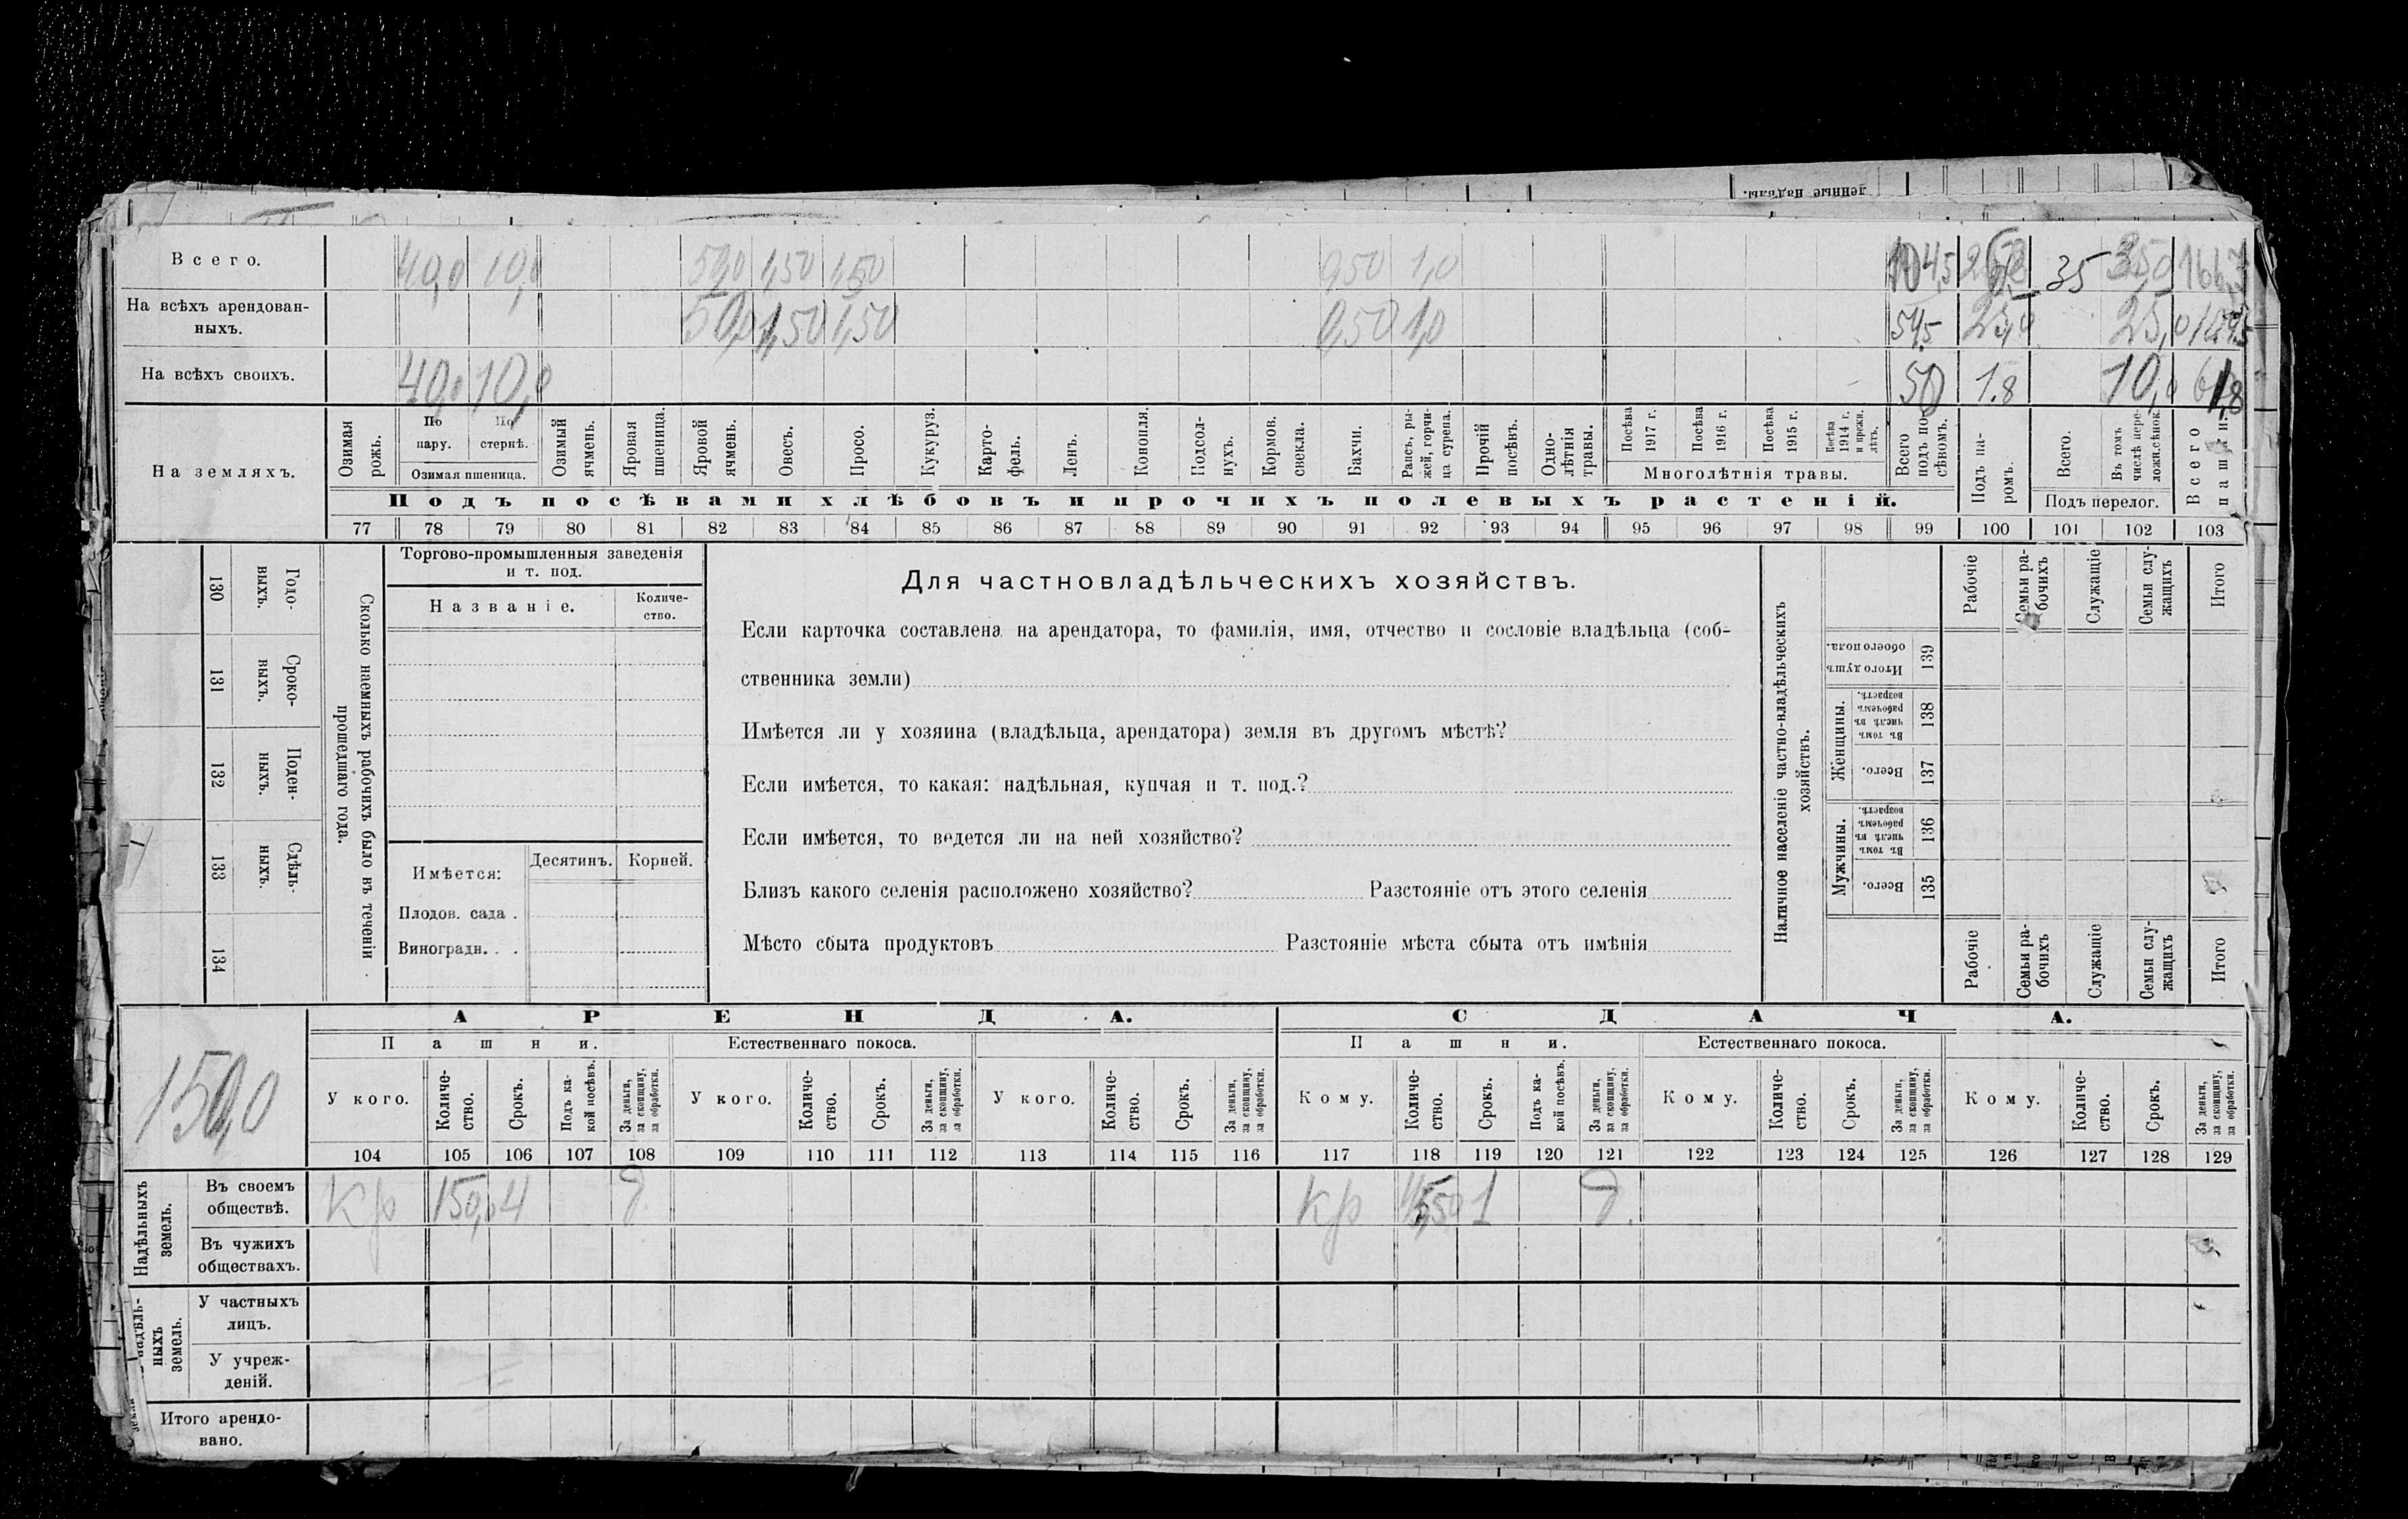 денные надѣлы.
Всего. 40,0 10,0 1,50 1,50 1,0 35
На всѣхъ арендован-
ныхъ. 50,0 1,50 1,50 0,50 1,0 54,5 25,0 25,0
На всѣхъ своихъ. 40,0 10,0 50 1.8 10,0
На земляхъ.
Озимая рожь.
По пару.
По стернѣ.
Озимая пшеница.
Озимый ячмень.
Яровая пшеница.
Яровой ячмень.
Овесъ.
Просо.
Кукуруз.
Карто-
фель.
Ленъ.
Конопля.
Подсол-
нухъ.
Кормов. свекла.
Бахчи.
Рапсъ, ры-
жей, горчи-
ца сурепа.
Прочій посѣвъ.
Одно-
лѣтнія травы.
Посѣва 1917 г.
Посѣва 1916 г.
Посѣва 1915 г.
Посѣва 1914 г. и прежн. лѣтъ.
Многолѣтнія травы.
Всего подъ по-
сѣвомъ.
Подъ па-
ромъ.
Всего.
Въ томъ числѣ пере-
ложн.сѣнок.
Подъ перелог.
Всего пашни.
Подъ посѣвами хлѣбовъ и прочихъ полевыхъ растеній.
77 78 79 80 81 82 83 84 85 86 87 88 89 90 91 92 93 94 95 96 97 98 99 100 101 102 103
130 Годо-
выхъ.
131 Сроко-
выхъ.
132 Поден-
ныхъ.
133 Сдѣль-
ныхъ.
134
Сколько наемныхъ рабочихъ было въ теченіи
прошедшаго года.
Торгово-промышленныя заведенія
и т. под.
Названіе.
Количе-
ство.
Имѣется: Десятинъ. Корней.
Плодов. сада .
Виноградн. . .
Для частновладѣльческихъ хозяйствъ.
Если карточка составлена на арендатора, то фамилія, имя, отчество и сословіе владѣльца (соб-
ственника земли)
Имѣется ли у хозяина (владѣльца, арендатора) земля въ другомъ мѣстѣ?
Если имѣется, то какая: надѣльная, купчая и т. под.?
Если имѣется, то ведется ли на ней хозяйство?
Близъ какого селенія расположено хозяйство? Разстояніе отъ этого селенія
Мѣсто сбыта продуктовъ Разстояніе мѣста сбыта отъ имѣнія
Наличное населеніе частно-владѣльческихъ
хозяйствъ.
Рабочіе
Семьи ра-
бочихъ
Служащіе
Семьи слу-
жащихъ
Итого
Итого душъ
обоего пола. 139
Женщины.
Въ томъ числѣ въ рабочемъ возрастѣ. 138
Всего. 137
Мужчины.
Въ томъ числѣ въ рабочемъ возрастѣ. 136
Всего. 135
Рабочіе
Семьи ра-
бочихъ
Служащіе
Семьи слу-
жащихъ
Итого
АРЕНДА. СДАЧА.
Пашни. Естественнаго покоса. Пашни. Естественнаго покоса.
У кого.
Количе-
ство.
Срокъ.
Подъ ка-
кой посѣвъ.
За деньги,
за скопщину,
за обработки.
У кого.
Количе-
ство.
Срокъ.
За деньги,
за скопщину,
за обработки.
У кого.
Количе-
ство.
Срокъ.
За деньги,
за скопщину,
за обработки.
Кому.
Количе-
ство.
Срокъ.
Подъ ка-
кой посѣвъ.
За деньги,
за скопщину,
за обработки.
Кому.
Количе-
ство.
Срокъ.
За деньги,
за скопщину,
за обработки.
Кому.
Количе-
ство.
Срокъ.
За деньги,
за скопщину,
за обработки.
104 105 106 107 108 109 110 111 112 113 114 115 116 117 118 119 120 121 122 123 124 125 126 127 128 129
Надѣльныхъ
земель.
Въ своемъ
обществѣ. Кр 150,0 4 Кр 1
Въ чужихъ
обществахъ.
ныхъ
земель.
У частныхъ
лицъ.
У учреж-
деній.
Итого арендо-
вано.